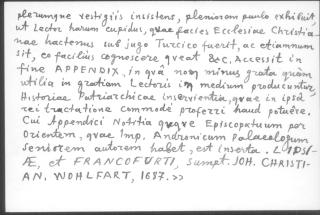 plerumque vestigiis insistens, pleniorem paulo exhibuit,
ut Lector harum cupidus, qvae facies Ecclesiae Christia-
nae hactenus sub jugo Turcico fuerit, ac etiamnum
sit, eo facilius cognoscere qveat &c. Accessit in
fine APPENDIX, in qvâ non minus grata qvàm
utilia in gratiam Lectoris in medium producuntur,
Historiae Patriarchicae inservientia, qvae in ipsâ
rei tractatione commodè proferri haud potuêre.
Cui Appendici Notitia qvoqve Episcopatuum per
Orientem, qvae Imp. Andronicum Palaeologum
Seniorem autorem habet, est inserta. LIPSI-
Æ, et FRANCOFURTI, sumpt. JOH. CHRISTI-
AN. WOHLFART, 1687. >>